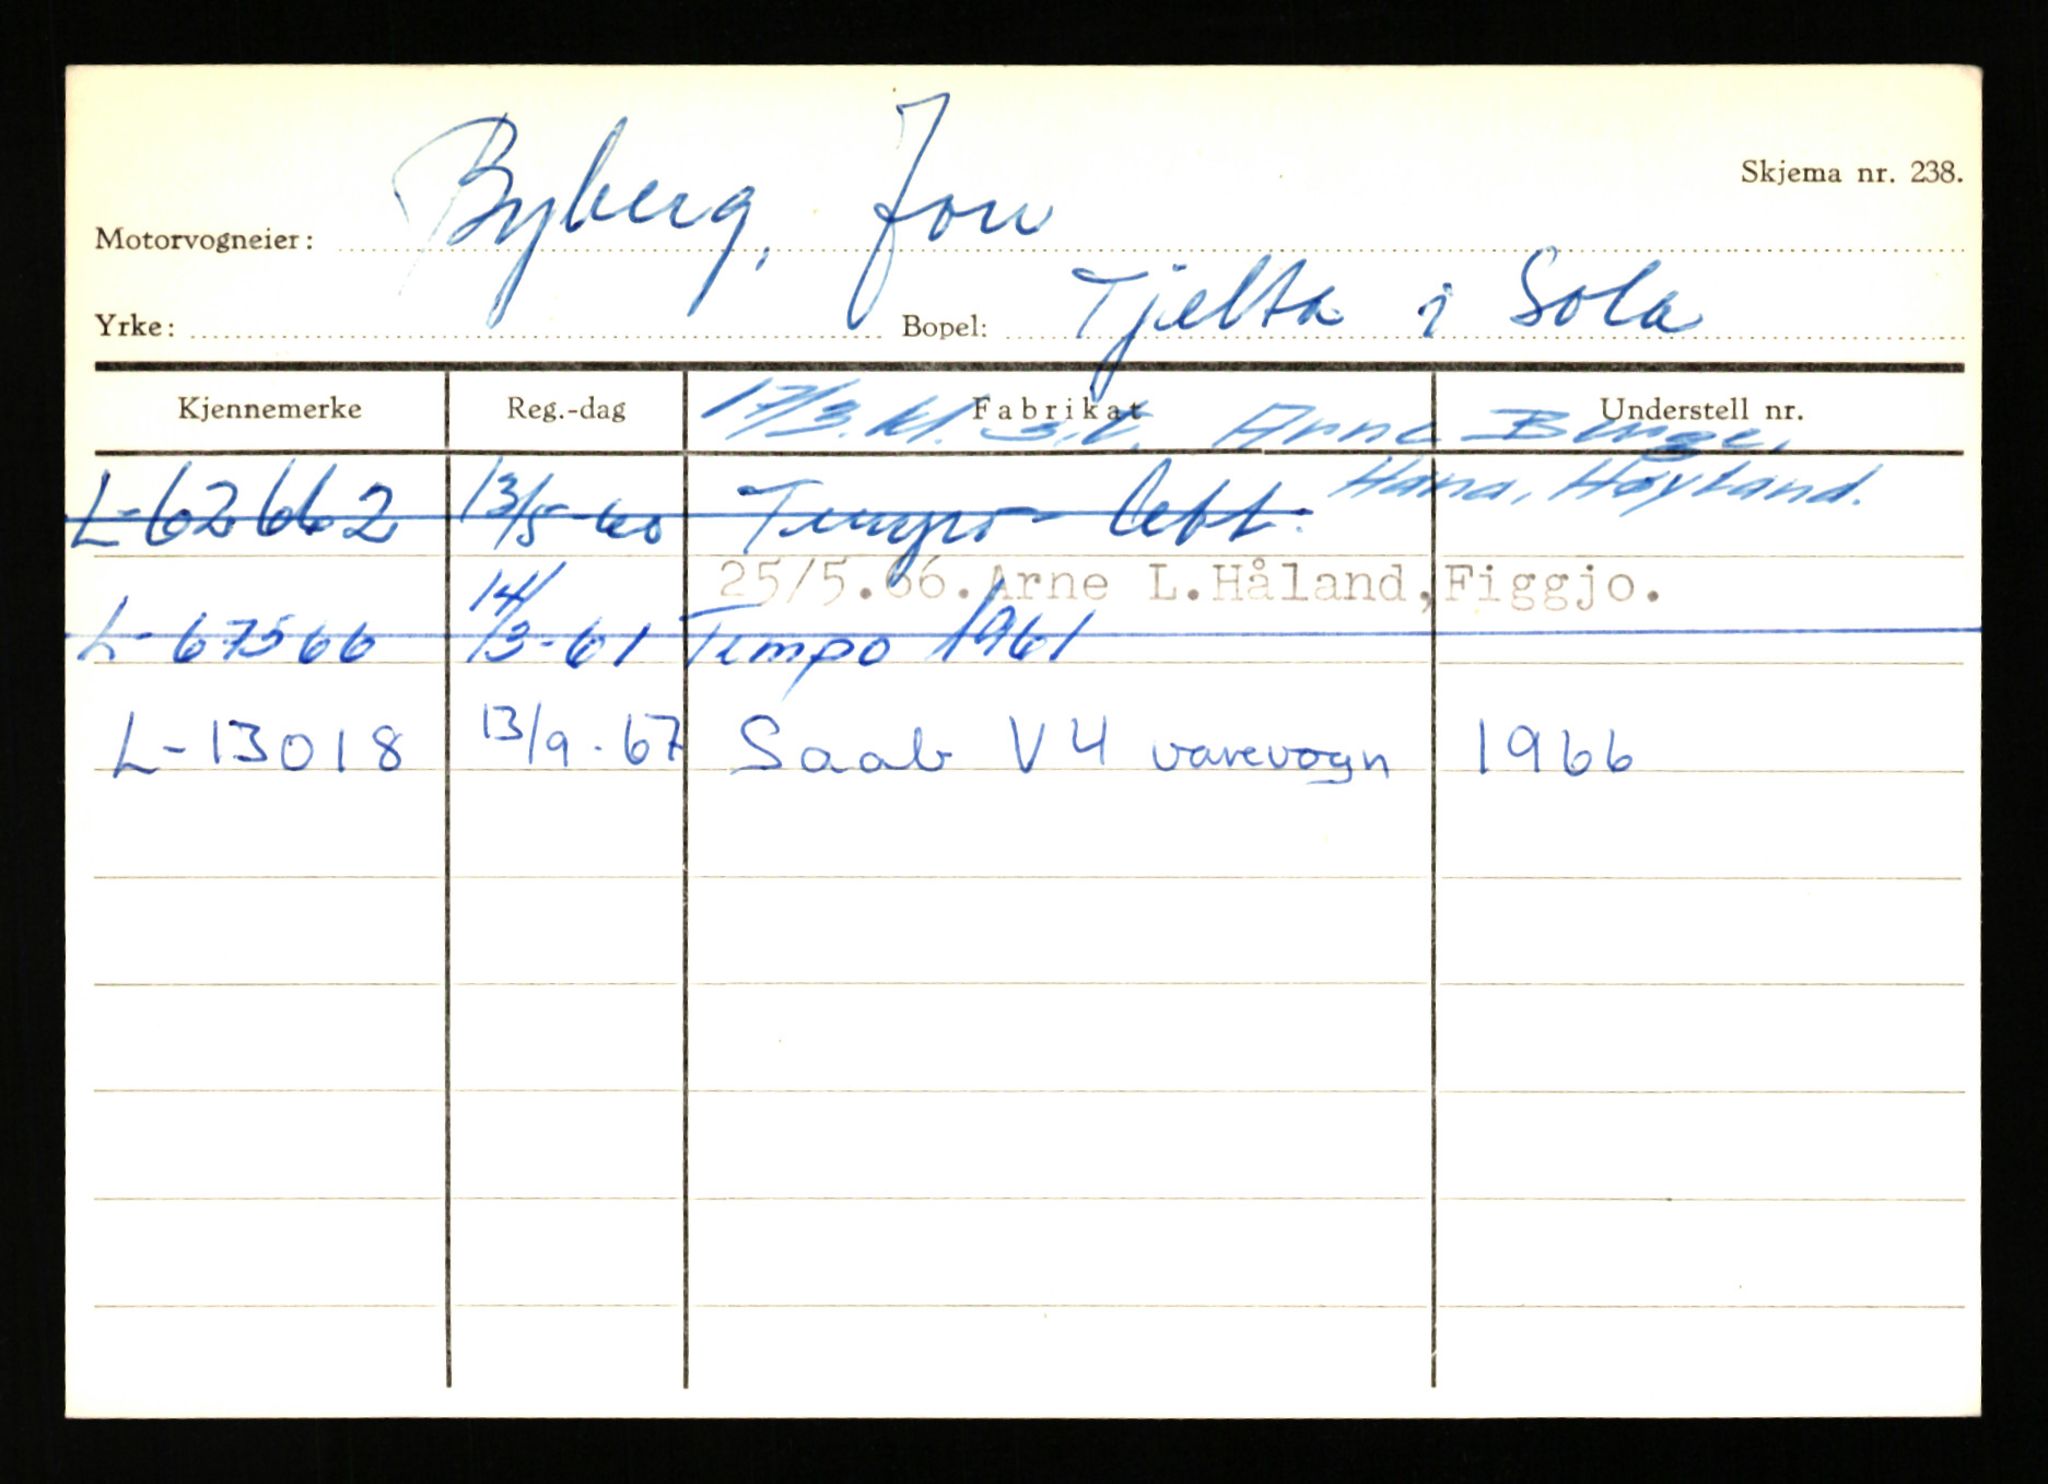 Skjema nr. 238.
Motorvogneier: Byberg, Jon
Yrke: Bopel: Tjelta i Sola
Kjennemerke Reg.-dag Fabrikat Understell nr.
17/3. Arne
Hana, Høyland.
L-62662 13/5-60 Tempo lett.
25/5.66. Arne L. Håland, Figgjo.
L-67566 14/3-61 Tempo 1961
L-13018 13/9-67 Saab V4 varevogn 1966